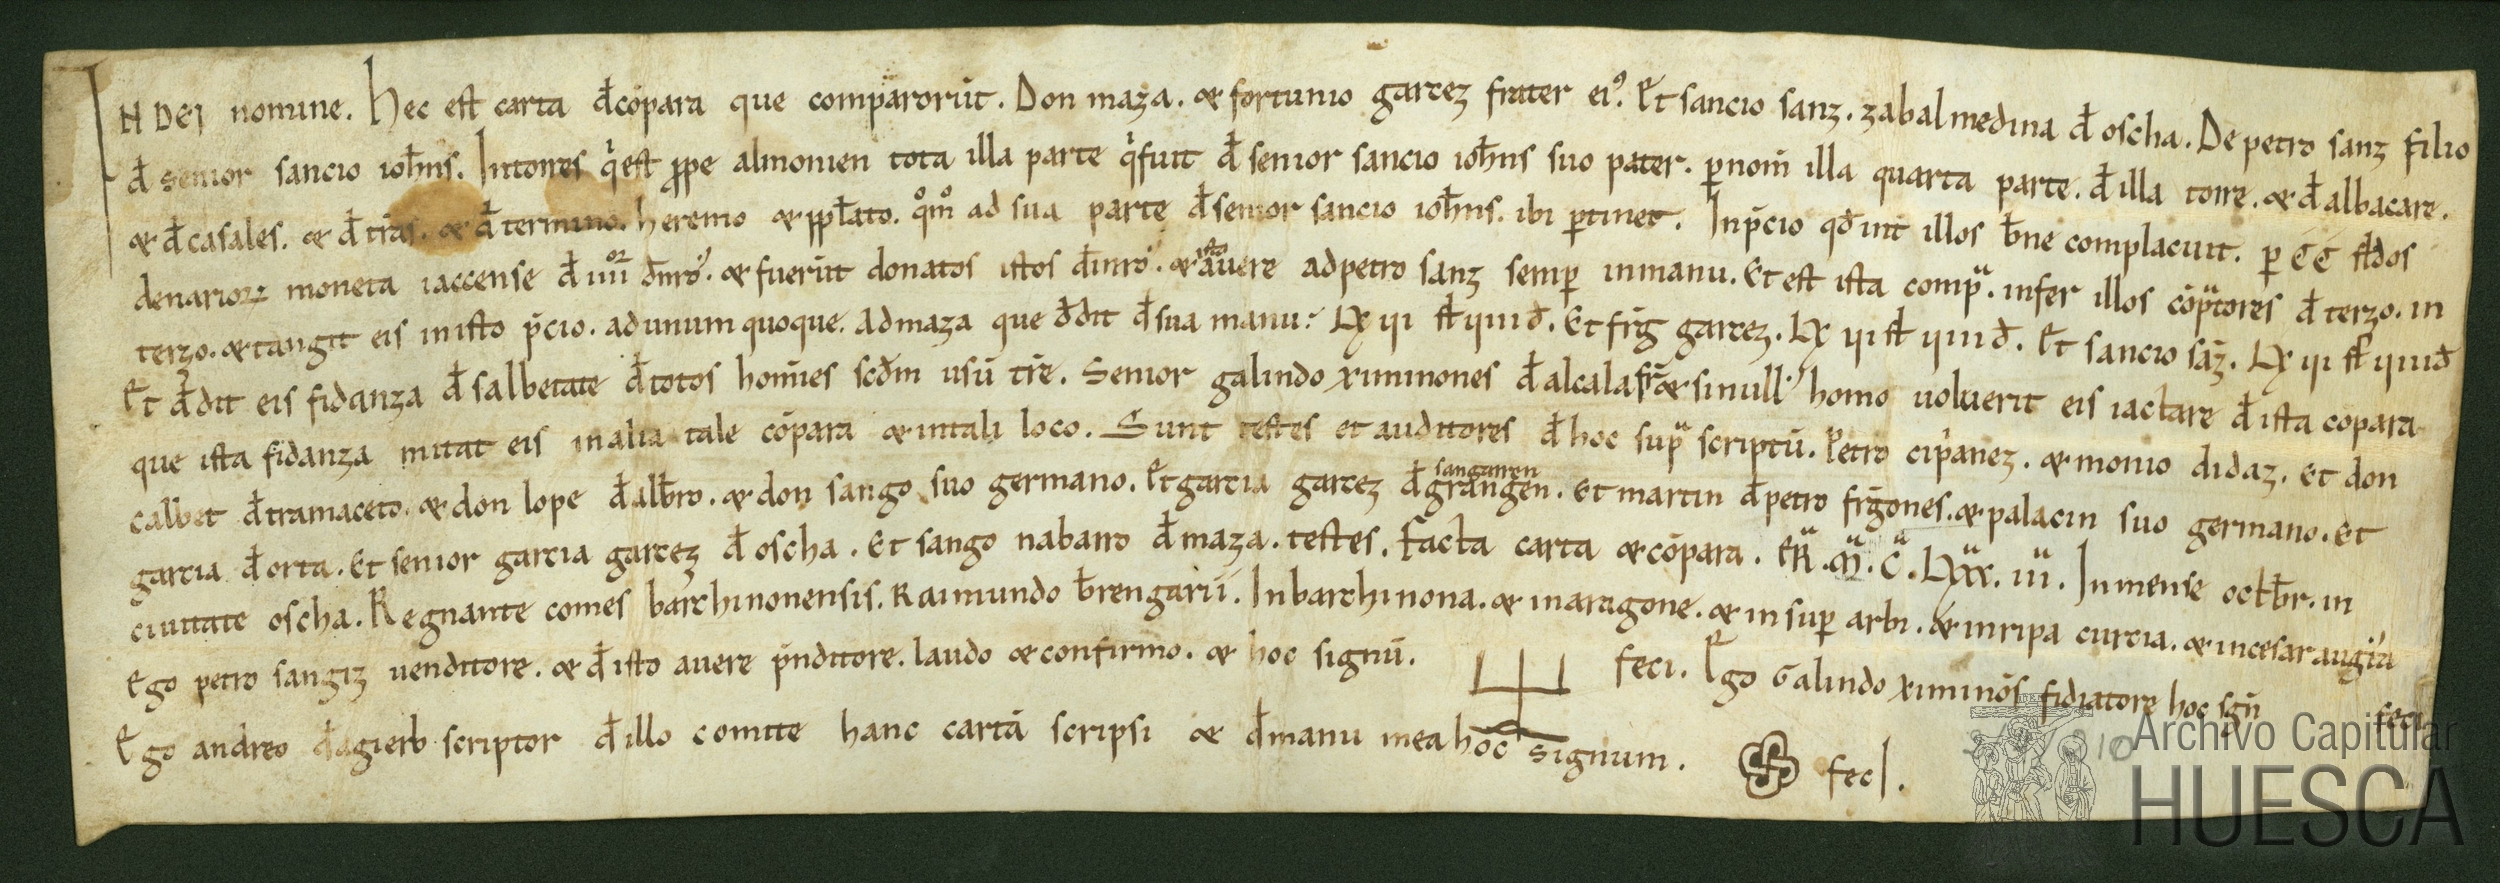 IN DEI nomine. Hec est carta đ cōpara que compararorūt. Don maza. & fortunio garcez frater ei⁹. Et sancio sanz. zabalmedina đ oscha. De petro sanz filio
đ senior sancio ioħns. In torres q̓ est ꝓpe almonien tota illa parte q̓ fuit đ senior sancio ioħns suo pater. ꝑ nom̄ illa quarta parte. đ illa torre. & đ albacare.
& đ casales. & đ tr̄as. & đ termino. heremo & pplato. qᵒmᵒ ad sua parte đ senior sancio ioħns. ibi ꝑtinet. In p̄cio qđ int illos ƀne complacuit. ꝑ CC słdos
denarioꝝ moneta iaccense đ iiiiᵒʳ dn̄ros. & fuerūt donatos istos đinros. & isto auere ad petro sanz semꝑ in manu. Et est ista compᵃ. infer illos cōpᵃtores đ terzo. in
terzo. & tangit eis in isto p̄cio. ad unum quoque. Ad maza que đdit đ sua manu. Lx vi sł iiii đ. Et frīg garcez. Lx vi sł iiii đ. Et sancio sāz. Lx vi sł iiii đ
Et đdit eis fidanza đ salbetate đ totos homīes scđm usū tr̄e. Senior galindo ximinones đ alcala fr̄a & si null⁹ homo uoluerit eis iactare đ ista copara
que ista fidanza mitat eis in alia tale cōpara & in tali loco. Sunt testes et auditores đ hoc supᵃ scriptū. Petro cip̓anez. & monio didaz. Et don
calbet đ tramaceto. & don lope đ alƀro. & don sango suo germano. Et garcia garcez đ grangen sangarren. Et martin đ petro frīgones. & palacin suo germano. Et
garcia đ orta. Et senior garcia garcez đ oscha. Et sango nabarro đ maza. testes. Facta carta & cōpara. ERᵃ. Mᵃ. Cᵃ. Lxxxᵃ. iiiᵃ. In mense octƀr. in
ciuitate oscha. Regnante comes barchinonensis. Raimundo ƀrengarii. In barchinona. & in aragone. & in suꝑ arbi. & in ripa curcia. & in cesaraugᵃ
Ego petro sangiz uenditore. & đ isto auere p̄nditore. laudo & confirmo. & hoc signū. feci. Ego Galindo ximinōs fidiatore hoc sgn̄ feci
Ego andreo đ agierb scriptor đ illo comite hanc cartā scripsi & đ manu mea hoc signum. feci.
Archivo Capitular
HUESCA